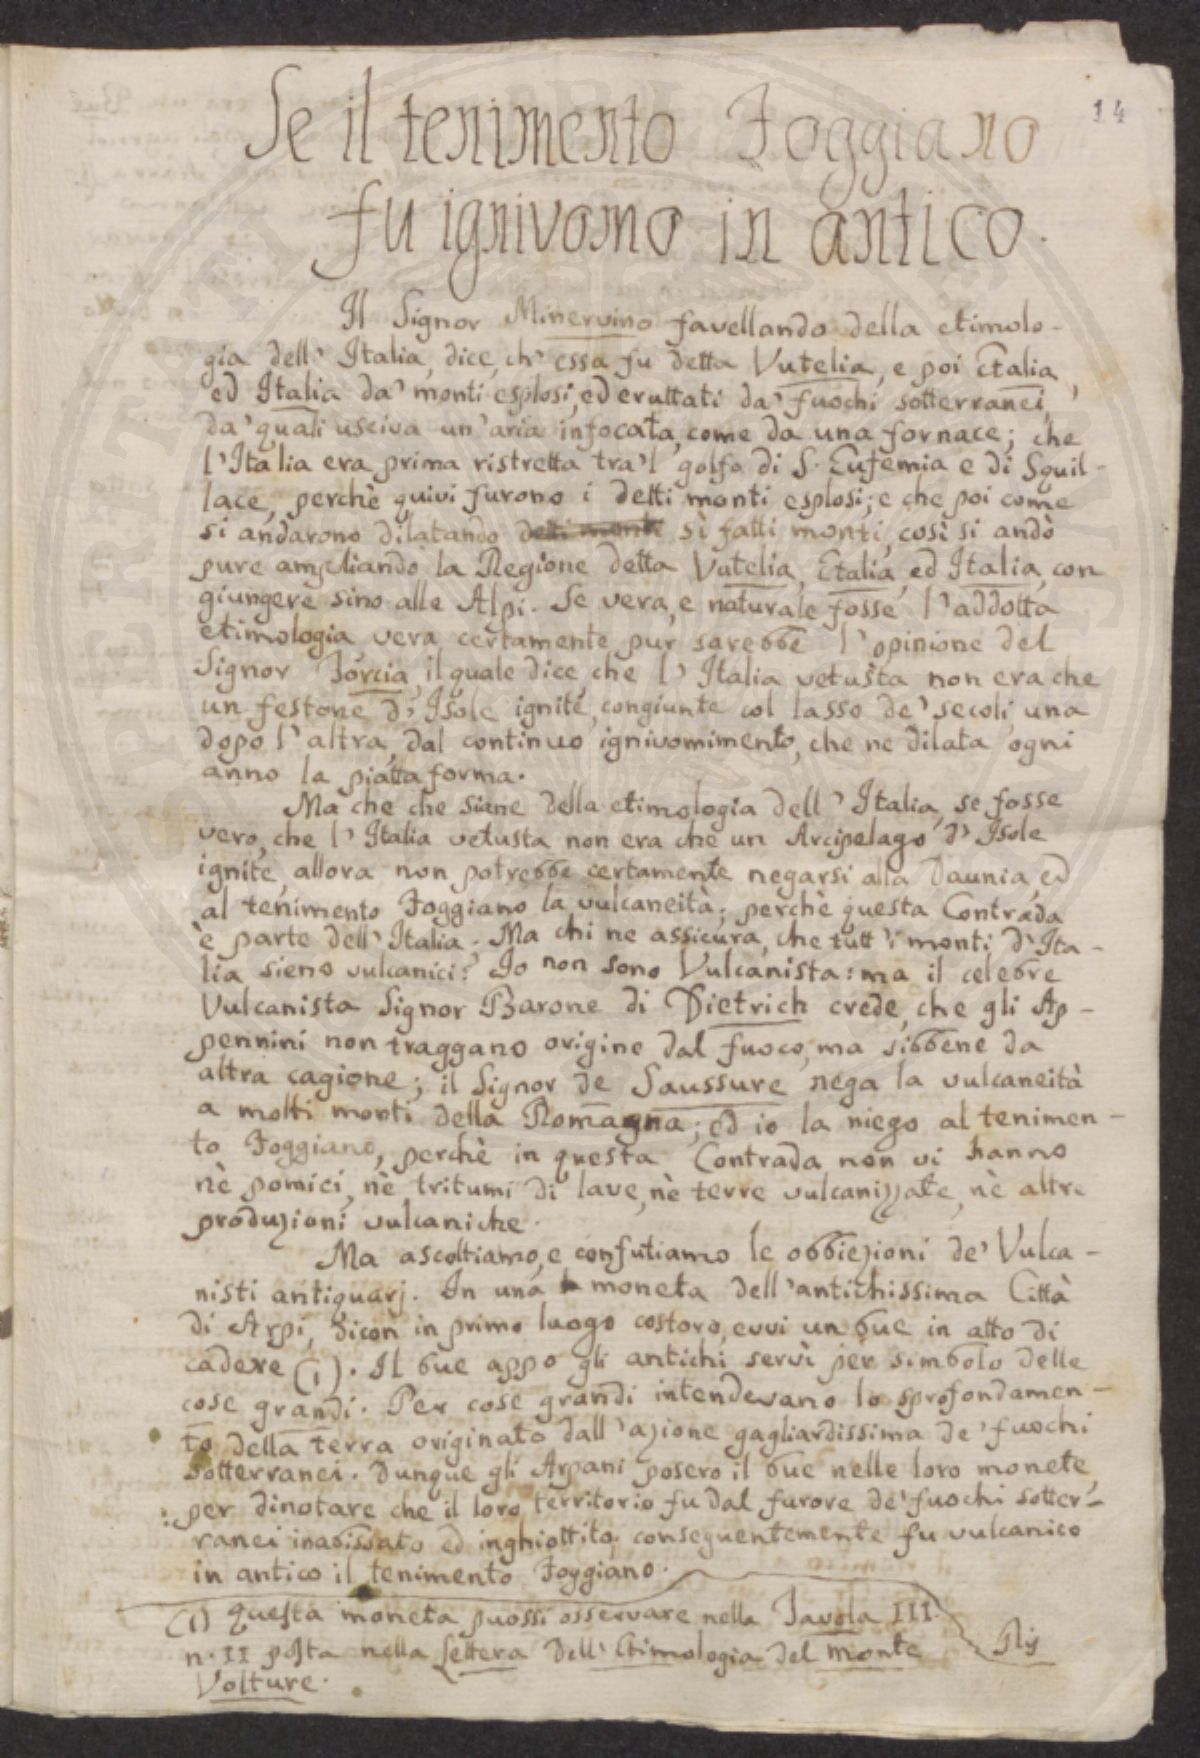 14
Se il tenimento Foggiano
fu ignivomo in antico.
Il Signor Minervino favellando della etimolo-
gia dell' Italia, dice, ch' essa fu detta Vutelia, e poi Etalia,
ed Italia da' monti esplosi, ed eruttati da' fuochi sotterranei,
da' quali usciva un' aria infocata, come da una fornace; che
l' Italia era prima ristretta tra 'l golfo di S. Eufemia e di Squil-
lace, perchè quivi furono i detti monti esplosi; e che poi come
si andarono dilatando detti monti sì fatti monti, così si andò
pure ampliando la Regione detta Vutelia, Etalia, ed Italia, con
giungere sino alle Alpi. Se vera, e naturale fosse l' addotta
etimologia, vera certamente pur sarebbe l' opinione del
Signor Torcia, il quale dice, che l' Italia vetusta non era che
un festone d' Isole ignite, congiunte col lasso de' secoli una
dopo l' altra, dal continuo ignivomimento, che ne dilata ogni
anno la piattaforma.
Ma che che siane della etimologia dell' Italia, se fosse
vero, che l' Italia vetusta non era che un Arcipelago d' Isole
ignite, allora non potrebbe certamente negarsi alla Daunia, ed
al tenimento Foggiano la vulcaneità; perchè questa Contrada
è parte dell' Italia. Ma chi ne assicura, che tutt' i monti d' Ita-
lia sieno vulcanici? Io non sono Vulcanista: ma il celebre
Vulcanista Signor Barone di Dietrich crede, che gli Ap-
pennini non traggano origine dal fuoco, ma sibbene da
altra cagione; il Signor de Saussure nega la vulcaneità
a molti monti della Romagna; ed io la niego al tenimen-
to Foggiano, perchè in questa Contrada non vi hanno
nè pomici, nè tritumi di lave, nè terre vulcanizzate, nè altre
produzioni vulcaniche.
Ma ascoltiamo, e confutiamo le obbiezioni de' Vulca-
nisti antiquarj. In una moneta dell' antichissima Città
di Arpi, dicon in primo luogo costoro, evvi un bue in atto di
cadere (1). Il bue appo gli antichi servì per simbolo delle
cose grandi. Per cose grandi intendevano lo sprofondamen-
to della terra originato dall' azione gagliardissima de' fuochi
sotterranei. Dunque gli Arpani posero il bue nelle loro monete,
per dinotare che il loro territorio fu dal furore de' fuochi sotter-
ranei inabissato ed inghiottito; conseguentemente fu vulcanico
in antico il tenimento Foggiano.
(1) Questa moneta puossi osservare nella Tavola III.
n. II posta nella Lettera dell' Etimologia del monte
Volture.
Ris
SPERITATI